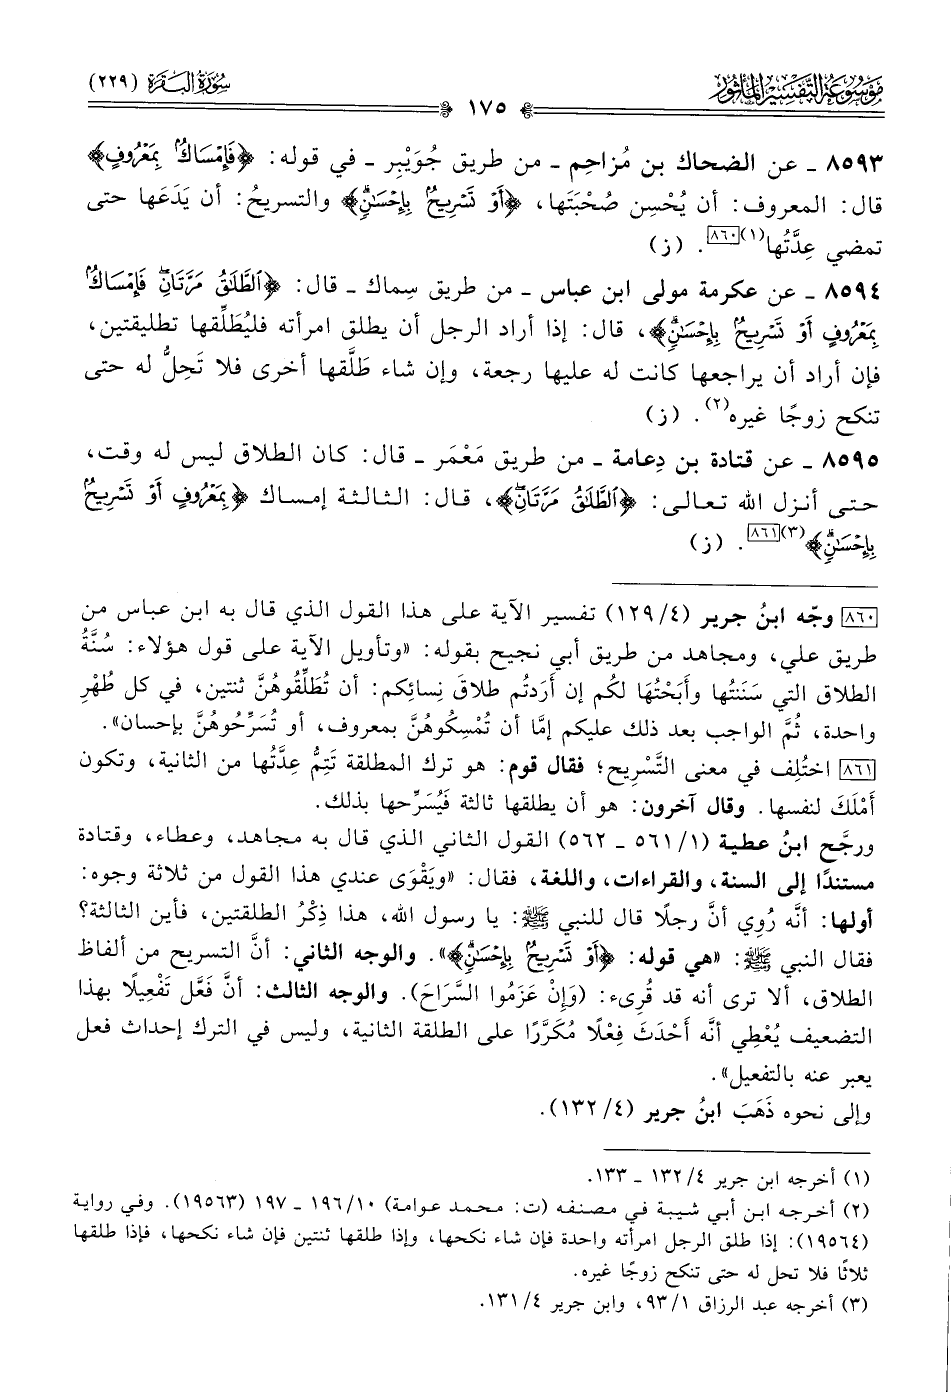 مَوْسُوعَة التَّفْسِير المَأْثُور
سُورَةُ البَقَرَة (٢٢٩)
١٧٥
٨٥٩٣ ـ عن الضحاك بن مُزاحِم ـ من طريق جُوَيْبِر ـ في قوله: ﴿فَإِمْسَاكٌ بِمَعْرُوفٍ﴾
قال: المعروف: أن يُحْسِن صُحْبَتَها، ﴿أَوْ تَسْرِيحٌ بِإِحْسَٰنٍ﴾ والتسريحُ: أن يَدَعَها حتى
تمضي عِدَّتُها(١)[٨٦٠]. (ز)
٨٥٩٤ ـ عن عكرمة مولى ابن عباس ـ من طريق سِماك ـ قال: ﴿ٱلطَّلَٰقُ مَرَّتَانِ فَإِمْسَاكٌ
بِمَعْرُوفٍ أَوْ تَسْرِيحٌ بِإِحْسَٰنٍ﴾، قال: إذا أراد الرجل أن يطلق امرأته فليُطَلِّقها تطليقتين،
فإن أراد أن يراجعها كانت له عليها رجعة، وإن شاء طَلَّقها أخرى فلا تَحِلُّ له حتى
تنكح زوجًا غيره(٢). (ز)
٨٥٩٥ ـ عن قتادة بن دِعامة ـ من طريق مَعْمَر ـ قال: كان الطلاق ليس له وقت،
حتى أنزل الله تعالى: ﴿ٱلطَّلَٰقُ مَرَّتَانِ﴾، قال: الثالثة إمساك ﴿بِمَعْرُوفٍ أَوْ تَسْرِيحٌ
بِإِحْسَٰنٍ﴾(٣)[٨٦١]. (ز)
[٨٦٠] وجّه ابنُ جرير (٤/ ١٢٩) تفسير الآية على هذا القول الذي قال به ابن عباس من
طريق علي، ومجاهد من طريق أبي نجيح بقوله: «وتأويل الآية على قول هؤلاء: سُنَّةُ
الطلاق التي سَنَنتُها وأَبَحْتُها لكُم إن أَرَدتُم طلاقَ نِسائِكم: أن تُطَلِّقُوهُنَّ ثنتين، في كل طُهْرِ
واحدة، ثُمَّ الواجب بعد ذلك عليكم إمَّا أن تُمْسِكُوهُنَّ بمعروف، أو تُسَرِّحُوهُنَّ بإحسان».
[٨٦١] اختُلِف في معنى التَّسْرِيح؛ فقال قوم: هو ترك المطلقة تَتِمُّ عِدَّتُها من الثانية، وتكون
أَمْلَكَ لنفسها. وقال آخرون: هو أن يطلقها ثالثة فَيُسَرِّحها بذلك.
ورجَّح ابنُ عطية (١/ ٥٦١ ـ ٥٦٢) القول الثاني الذي قال به مجاهد، وعطاء، وقتادة
مستندًا إلى السنة، والقراءات، واللغة، فقال: «ويَقْوَى عندي هذا القول من ثلاثة وجوه:
أولها: أنَّه رُوِي أنَّ رجلًا قال للنبي ﷺ: يا رسول الله، هذا ذِكْرُ الطلقتين، فأين الثالثة؟
فقال النبي ﷺ: «هي قوله: ﴿أَوْ تَسْرِيحٌ بِإِحْسَٰنٍ﴾». والوجه الثاني: أنَّ التسريح من ألفاظ
الطلاق، ألا ترى أنه قد قُرِىء: (وَإِنْ عَزَمُوا السَّرَاحَ). والوجه الثالث: أنَّ فَعَّل تَفْعِيلًا بهذا
التضعيف يُعْطِي أنَّه أَحْدَثَ فِعْلًا مُكَرَّرًا على الطلقة الثانية، وليس في الترك إحداث فعل
يعبر عنه بالتفعيل».
وإلى نحوه ذَهَبَ ابنُ جرير (٤/ ١٣٢).
(١) أخرجه ابن جرير ٤/ ١٣٢ ـ ١٣٣.
(٢) أخرجه ابن أبي شيبة في مصنفه (ت: محمد عوامة) ١٠/ ١٩٦ ـ ١٩٧ (١٩٥٦٣). وفي رواية
(١٩٥٦٤): إذا طلق الرجل امرأته واحدة فإن شاء نكحها، وإذا طلقها ثنتين فإن شاء نكحها، فإذا طلقها
ثلاثًا فلا تحل له حتى تنكح زوجًا غيره.
(٣) أخرجه عبد الرزاق ١/ ٩٣، وابن جرير ٤/ ١٣١.